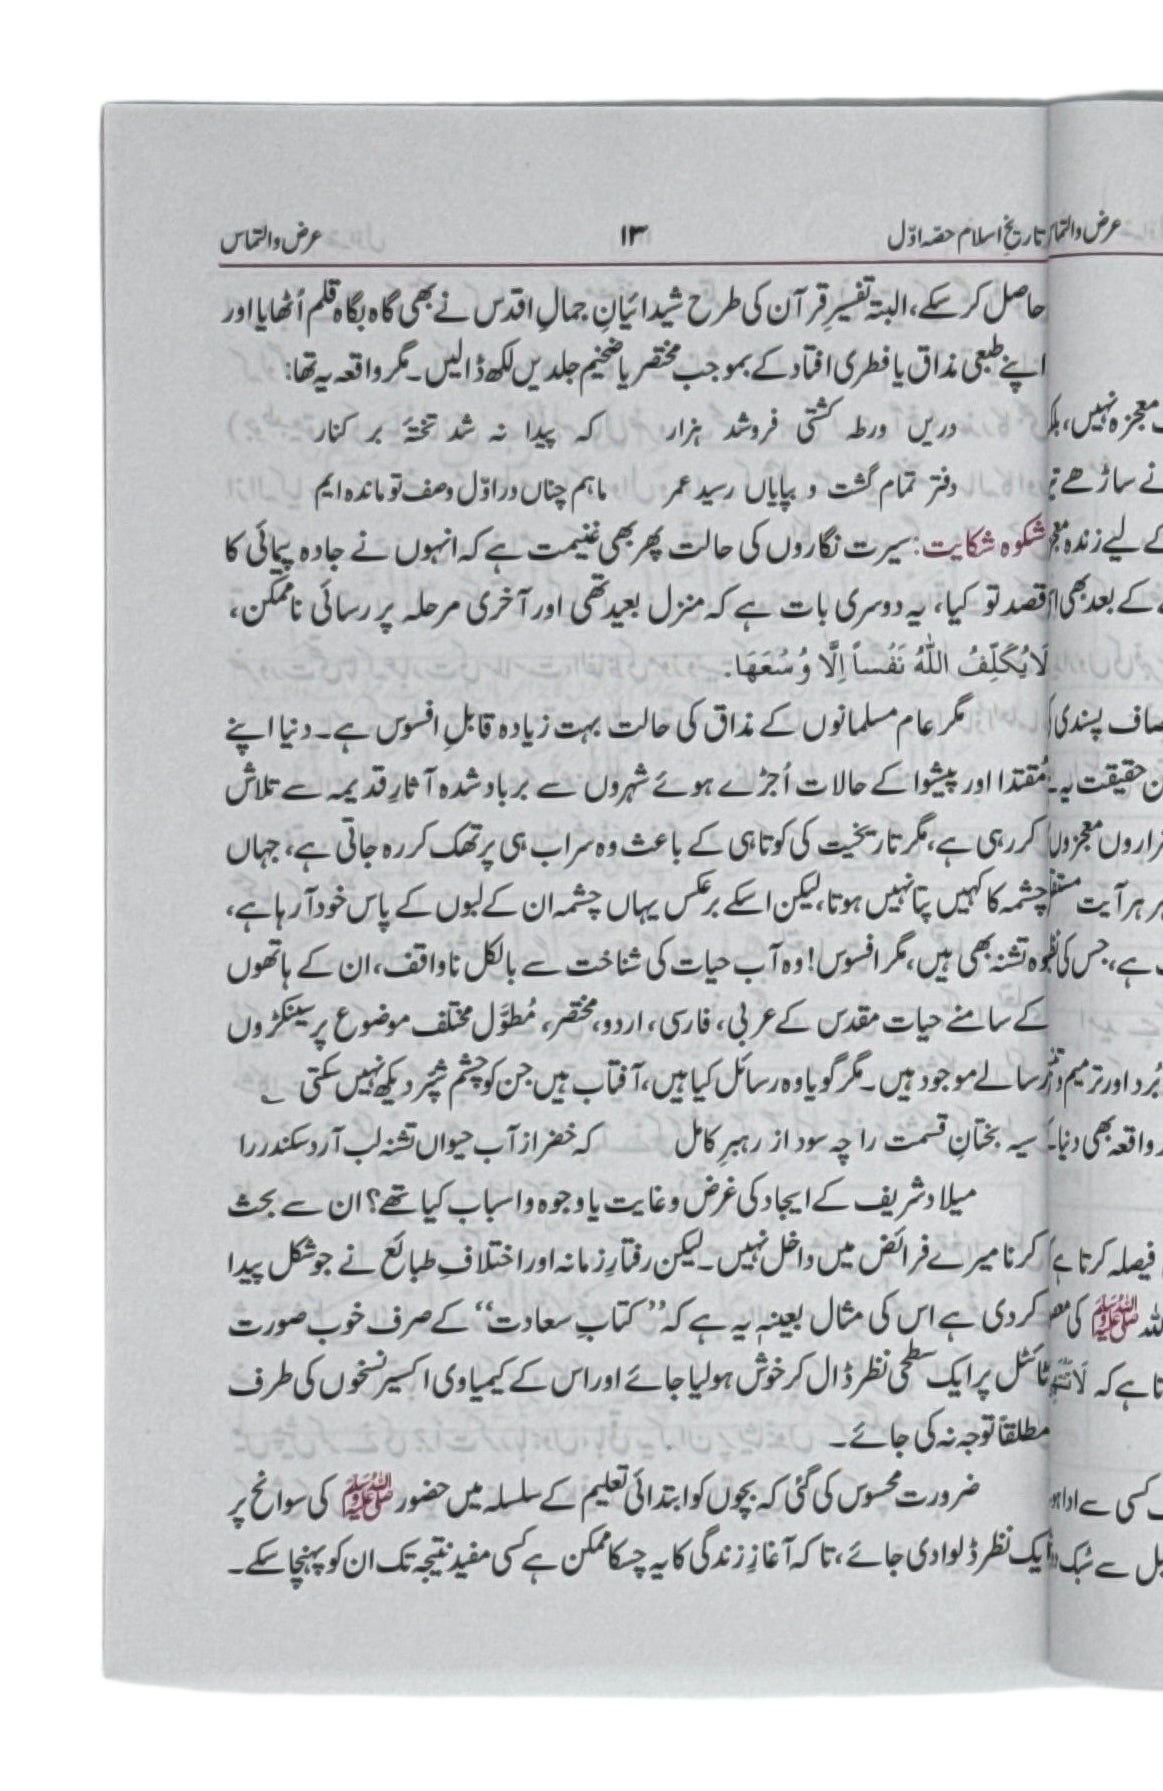 تاریخِ اسلام حصہ اوّل ۱۳ عرض والتماس
حاصل کرسکے، البتہ تفسیرِ قرآن کی طرح شیدائیانِ جمالِ اقدس نے بھی گاہ بگاہ قلم اُٹھایا اور
اپنے طبعی مذاق یا فطری افتاد کے بموجب مختصر یا ضخیم جلدیں لکھ ڈالیں۔ مگر واقعہ یہ تھا:
دریں ورطہ کشتی فروشد ہزار کہ پیدا نہ شد تختۂ بر کنار
دفتر تمام گشت و بپایاں رسید عمر ماہم چناں در اوّل وصف تو ماندہ ایم
شکوہ شکایت: سیرت نگاروں کی حالت پھر بھی غنیمت ہے کہ انہوں نے جادہ پیمائی کا
قصد تو کیا، یہ دوسری بات ہے کہ منزل بعید تھی اور آخری مرحلہ پر رسائی ناممکن،
لَایُکَلِّفُ اللّٰہُ نَفْساً اِلَّا وُسْعَھَا.
مگر عام مسلمانوں کے مذاق کی حالت بہت زیادہ قابلِ افسوس ہے۔ دنیا اپنے
مُقتدا اور پیشوا کے حالات اُجڑے ہوئے شہروں سے برباد شدہ آثارِ قدیمہ سے تلاش
کر رہی ہے، مگر تاریخیت کی کوتاہی کے باعث وہ سراب ہی پر تھک کر رہ جاتی ہے، جہاں
چشمہ کا کہیں پتا نہیں ہوتا، لیکن اسکے برعکس یہاں چشمہ ان کے لبوں کے پاس خود آرہا ہے،
وہ تشنہ بھی ہیں، مگر افسوس! وہ آب حیات کی شناخت سے بالکل ناواقف، ان کے ہاتھوں
کے سامنے حیات مقدس کے عربی، فارسی، اردو، مختصر، مُطوَّل مختلف موضوع پر سینکڑوں
رسالے موجود ہیں۔ مگر گویا وہ رسائل کیا ہیں، آفتاب ہیں جن کو چشم شپّر دیکھ نہیں سکتی ؎
سیہ بختانِ قسمت را چہ سود از رہبرِ کامل کہ خضر از آب حیواں تشنہ لب آرد سکندر را
میلاد شریف کے ایجاد کی غرض وغایت یا وجوہ و اسباب کیا تھے؟ ان سے بحث
کرنا میرے فرائض میں داخل نہیں۔ لیکن رفتارِ زمانہ اور اختلافِ طبائع نے جو شکل پیدا
کردی ہے اس کی مثال بعینہٖ یہ ہے کہ ’’کتابِ سعادت‘‘ کے صرف خوب صورت
ٹائٹل پر ایک سطحی نظر ڈال کر خوش ہولیا جائے اور اس کے کیمیاوی اکسیر نسخوں کی طرف
مطلقاً توجہ نہ کی جائے۔
ضرورت محسوس کی گئی کہ بچوں کو ابتدائی تعلیم کے سلسلہ میں حضور ﷺ کی سوانح پر
ایک نظر ڈلوا دی جائے، تا کہ آغازِ زندگی کا یہ چسکا ممکن ہے کسی مفید نتیجہ تک ان کو پہنچا سکے۔
عرض والتماس
معجزہ نہیں،
نے ساڑھے
کے لیے زندہ
کے بعد بھی
پسندی
حقیقت یہ
ہزاروں معجزوں
ہر آیت
ہے، جس کی
اور ترمیم
واقعہ بھی دنیا
فیصلہ کرتا ہے
ﷺ کی
ہے کہ
کسی سے ادا
سے سُبک